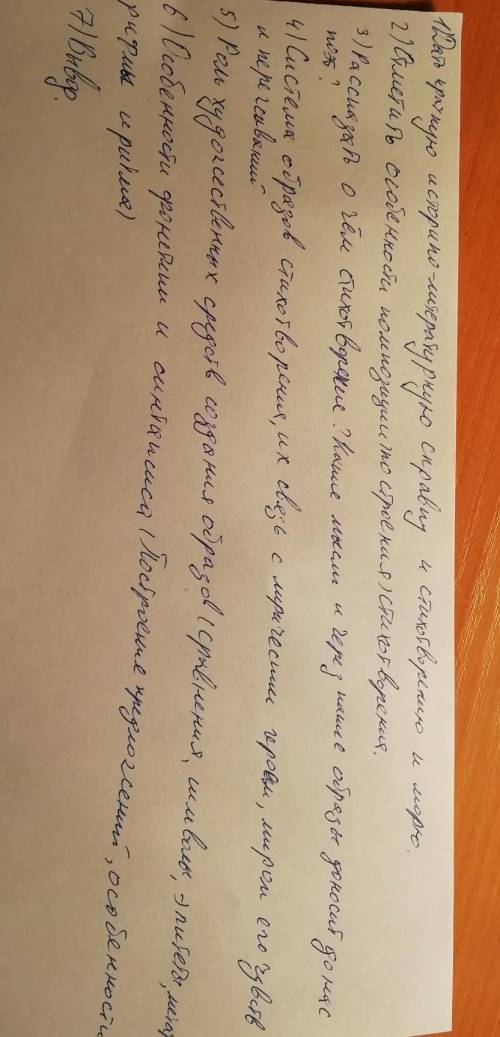 1) Дать краткую историко-литературную справку к стихотворению К морю.
2) Отметить особенности композиции (построения) стихотворения.
3) Рассказать о чём стихотворение? Какие мысли и через какие образы доносит до нас
поэт?
4) Система образов стихотворения, их связь с лирическим героем, миром его чувств
и переживаний
5) Роль художественных средств создания образов (сравнения, символы, эпитеты, мета
6) Особенности фонетики и синтаксиса (Построение предложений, особенности
рифмы и ритма)
7) Вывод.